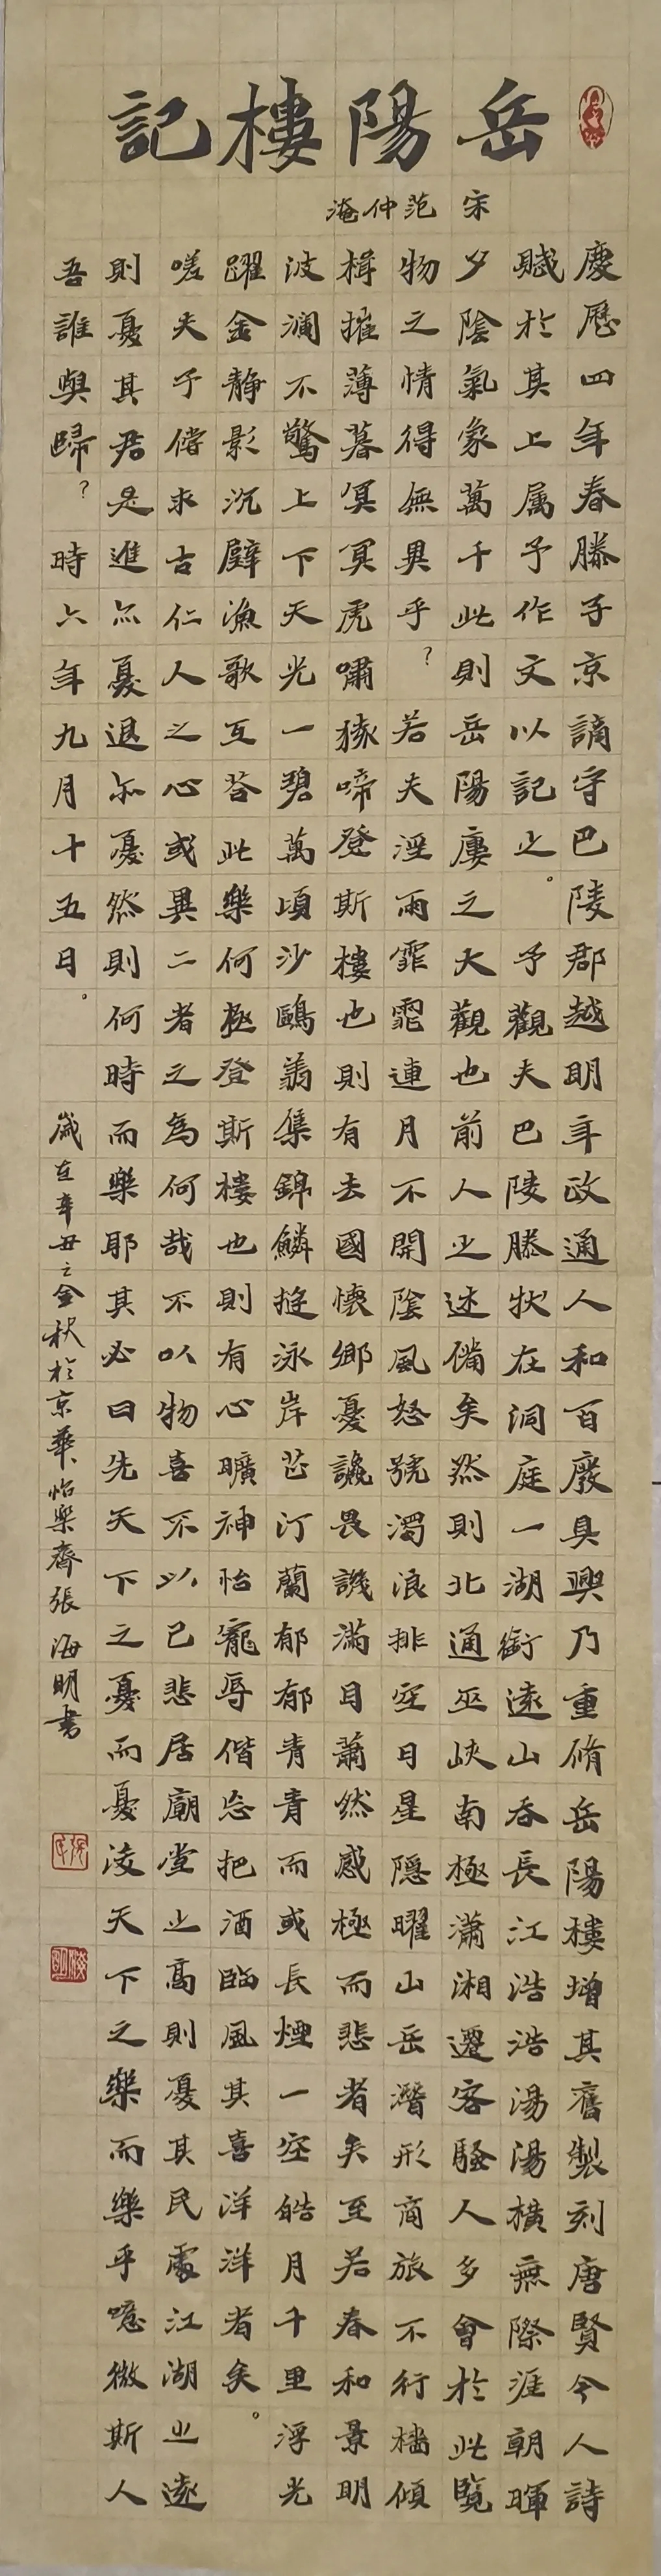 岳陽樓記
宋 范仲淹
慶歷四年春滕子京謫守巴陵郡越明年政通人和百廢具興乃重脩岳陽樓增其舊製刻唐賢今人詩
賦於其上属予作文以記之。予觀夫巴陵勝狀在洞庭一湖銜遠山吞長江浩浩湯湯橫無際涯朝暉
夕陰氣象萬千此則岳陽樓之大觀也前人之述備矣然則北通巫峽南極瀟湘遷客騷人多會於此覽
物之情得無異乎?若夫淫雨霏霏連月不開陰風怒號濁浪排空日星隱曜山岳潛形商旅不行檣傾
楫摧薄暮冥冥虎嘯猿啼登斯樓也則有去國懷鄉憂讒畏譏滿目蕭然感極而悲者矣至若春和景明
波瀾不驚上下天光一碧萬頃沙鷗翔集錦鱗遊泳岸芷汀蘭郁郁青青而或長煙一空皓月千里浮光
躍金静影沉壁漁歌互答此樂何極登斯樓也則有心曠神怡寵辱偕忘把酒臨風其喜洋洋者矣。
嗟夫予嘗求古仁人之心或異二者之為何哉不以物喜不以己悲居廟堂之高則憂其民處江湖之遠
則憂其君是進亦憂退亦憂然則何時而樂耶其必曰先天下之憂而憂後天下之樂而樂乎噫微斯人
吾誰與歸?時六年九月十五日。歲在辛丑之金秋於京華怡樂齋張海明書